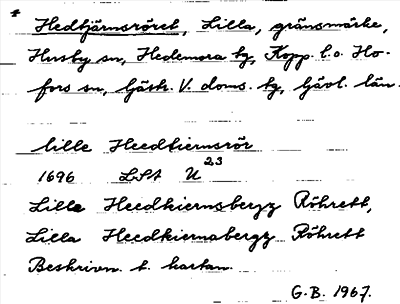 * Hedtjärnsröret, Lilla, gränsmärke,
Husby sn, Hedemora tg, Kopp. l. o. Ho-
fors sn, Gästr. V. doms. tg, Gävl. län.
lille Heedtiernsrör
1696 LSA U 23
Lilla Heedkiernsbergz Röhrett,
Lilla Heedkiernabergz Röhrett
Beskrivn. t. kartan.
G.B. 1967.